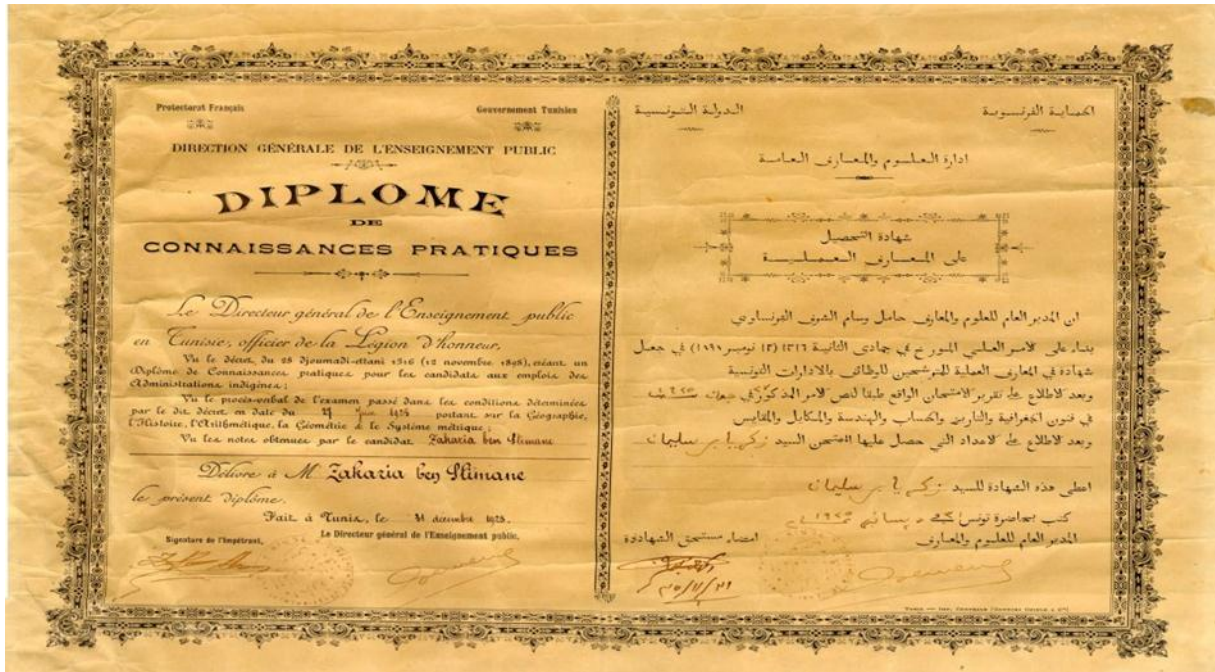 Protectorat Français
Gouvernement Tunisien
DIRECTION GÉNÉRALE DE L'ENSEIGNEMENT PUBLIC
DIPLOME
DE
CONNAISSANCES PRATIQUES
Le Directeur général de l'Enseignement public
en Tunisie, officier de la Légion d'honneur,
Vu le décret du 28 Djoumadi-ettani 1316 (12 novembre 1898), créant un
Diplôme de Connaissances pratiques pour les candidats aux emplois des
Administrations indigènes;
Vu le procès-verbal de l'examen passé dans les conditions déterminées
par le dit décret en date du 27 1925 portant sur la Géographie,
l'Histoire, l'Arithmétique, la Géométrie & le Système métique;
Vu les notes obtenues par le candidat Zakaria ben Slimane
Délivre à M Zakaria ben Slimane
le présent diplôme.
Fait à Tunis, le 31 décembre 1925.
Signature de l'Impétrant,
Le Directeur général de l'Enseignement public,
الحماية الفرنسوية
الدولة التونسية
ادارة العلوم والمعارف العامة
شهادة التحصيل
على المعارف العملية
ان المدير العام للعلوم والمعارف حامل وسام الشرف الفرنساوي
بناء على الامر العلي المورخ في جمادى الثانية ١٣١٦ (١٢ نومبر ١٨٩٨) في جعل
شهادة في المعارف العملية للمترشحين للوظائف بالادارات التونسية
وبعد الاطلاع على تقرير الامتحان الواقع طبقا لنص الامر المذكور في
في فنون الجغرافية والتاريخ والحساب والهندسة والمكايل والمقايس
وبعد الاطلاع على الاعداد التي حصل عليها الممتحن السيد زكرياء بن سليمان
اعطى هذه الشهادة للسيد زكرياء بن سليمان
كتب بحاضرة تونس في
المدير العام للعلوم والمعارف
امضاء مستحق الشهادة